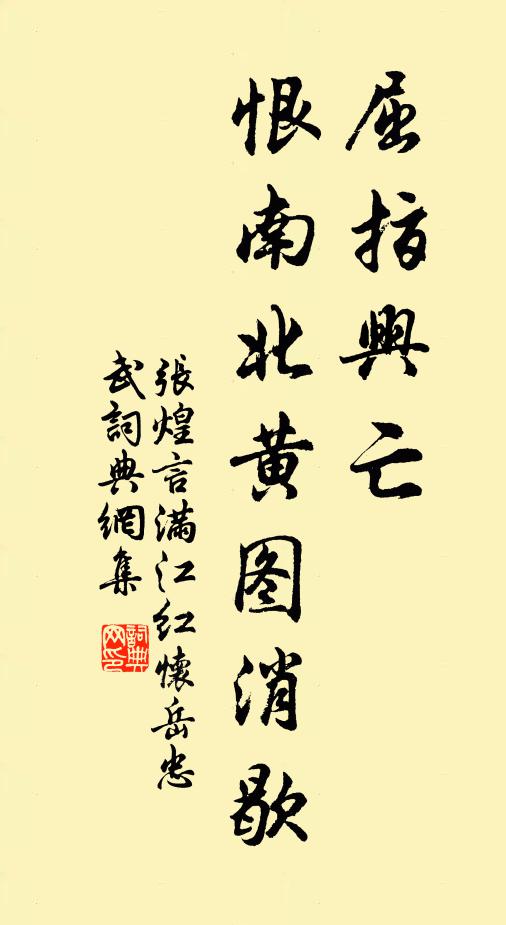 屈指興亡
恨南北黄图消歇
張煌言满江红懷岳忠
武詞典網集
詞典
网印